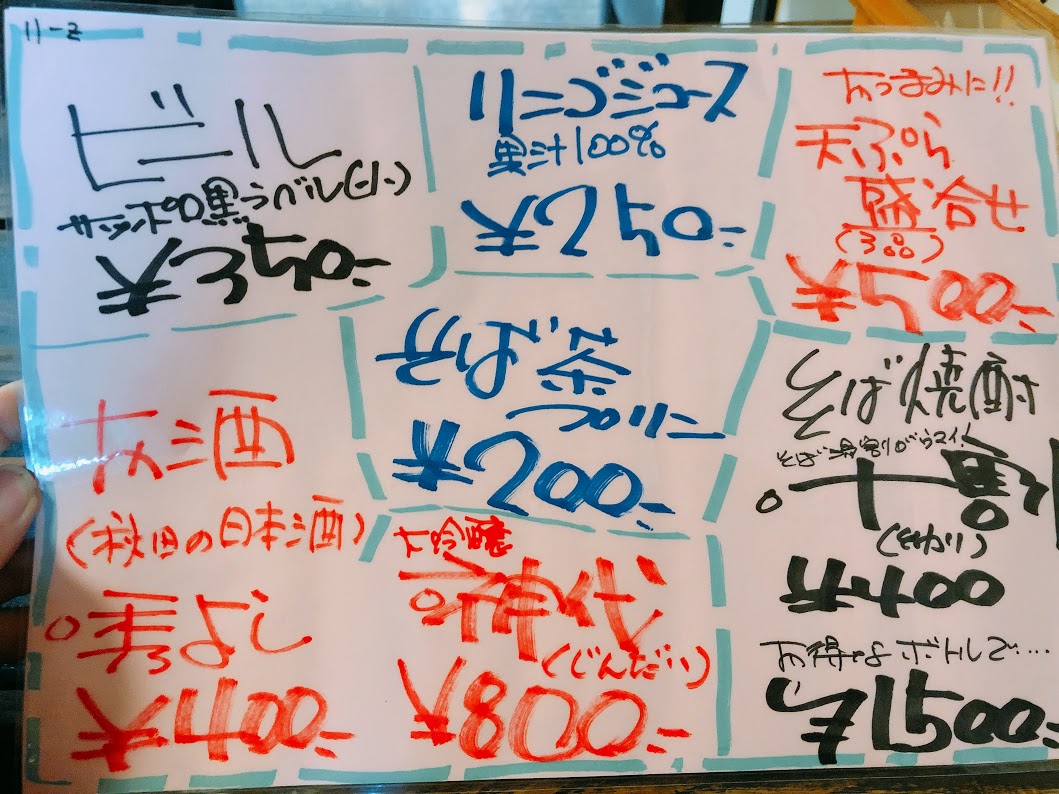 ビール
サッポロ黒ラベル(小)
¥350-
りんごジュース
果汁100%
¥250-
おつまみに!!
天ぷら
盛合せ
(3品)
¥500-
¥200-
そば焼酎
そば湯割りがウマイ!
。十割
(とわり)
¥400
お得なボトルで…
お酒
(秋田の日本酒)
¥400-
大吟醸
。神代
(じんだい)
¥800-